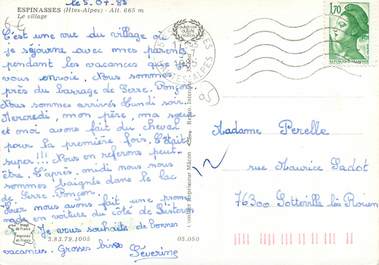 ESPINASSES (Htes-Alpes) - Alt. 665 m
Le village
le 5.07.83
C'est une vue du village où
je séjourne avec mes parents
pendant les vacances que je
vous envoie. Nous sommes
près du barrage de Serre-Ponçon.
Nous sommes arrivés lundi soir.
Mercredi, mon père, ma sœur
et moi avons fait du cheval
pour la première fois. C'était
super!!! Nous en referons peut-
être. L'après-midi nous nous
sommes baignés dans le lac
de Serre-Ponçon.
nous avons fait une prome-
nade en voiture du côté de Sisteron
Je vous souhaite de bonnes
vacances. Grosses bises
Séverine
3.83.79.1005
05.050
1,70
Madame Perelle
12, rue Maurice Sadot
76300 Sotteville lès Rouen